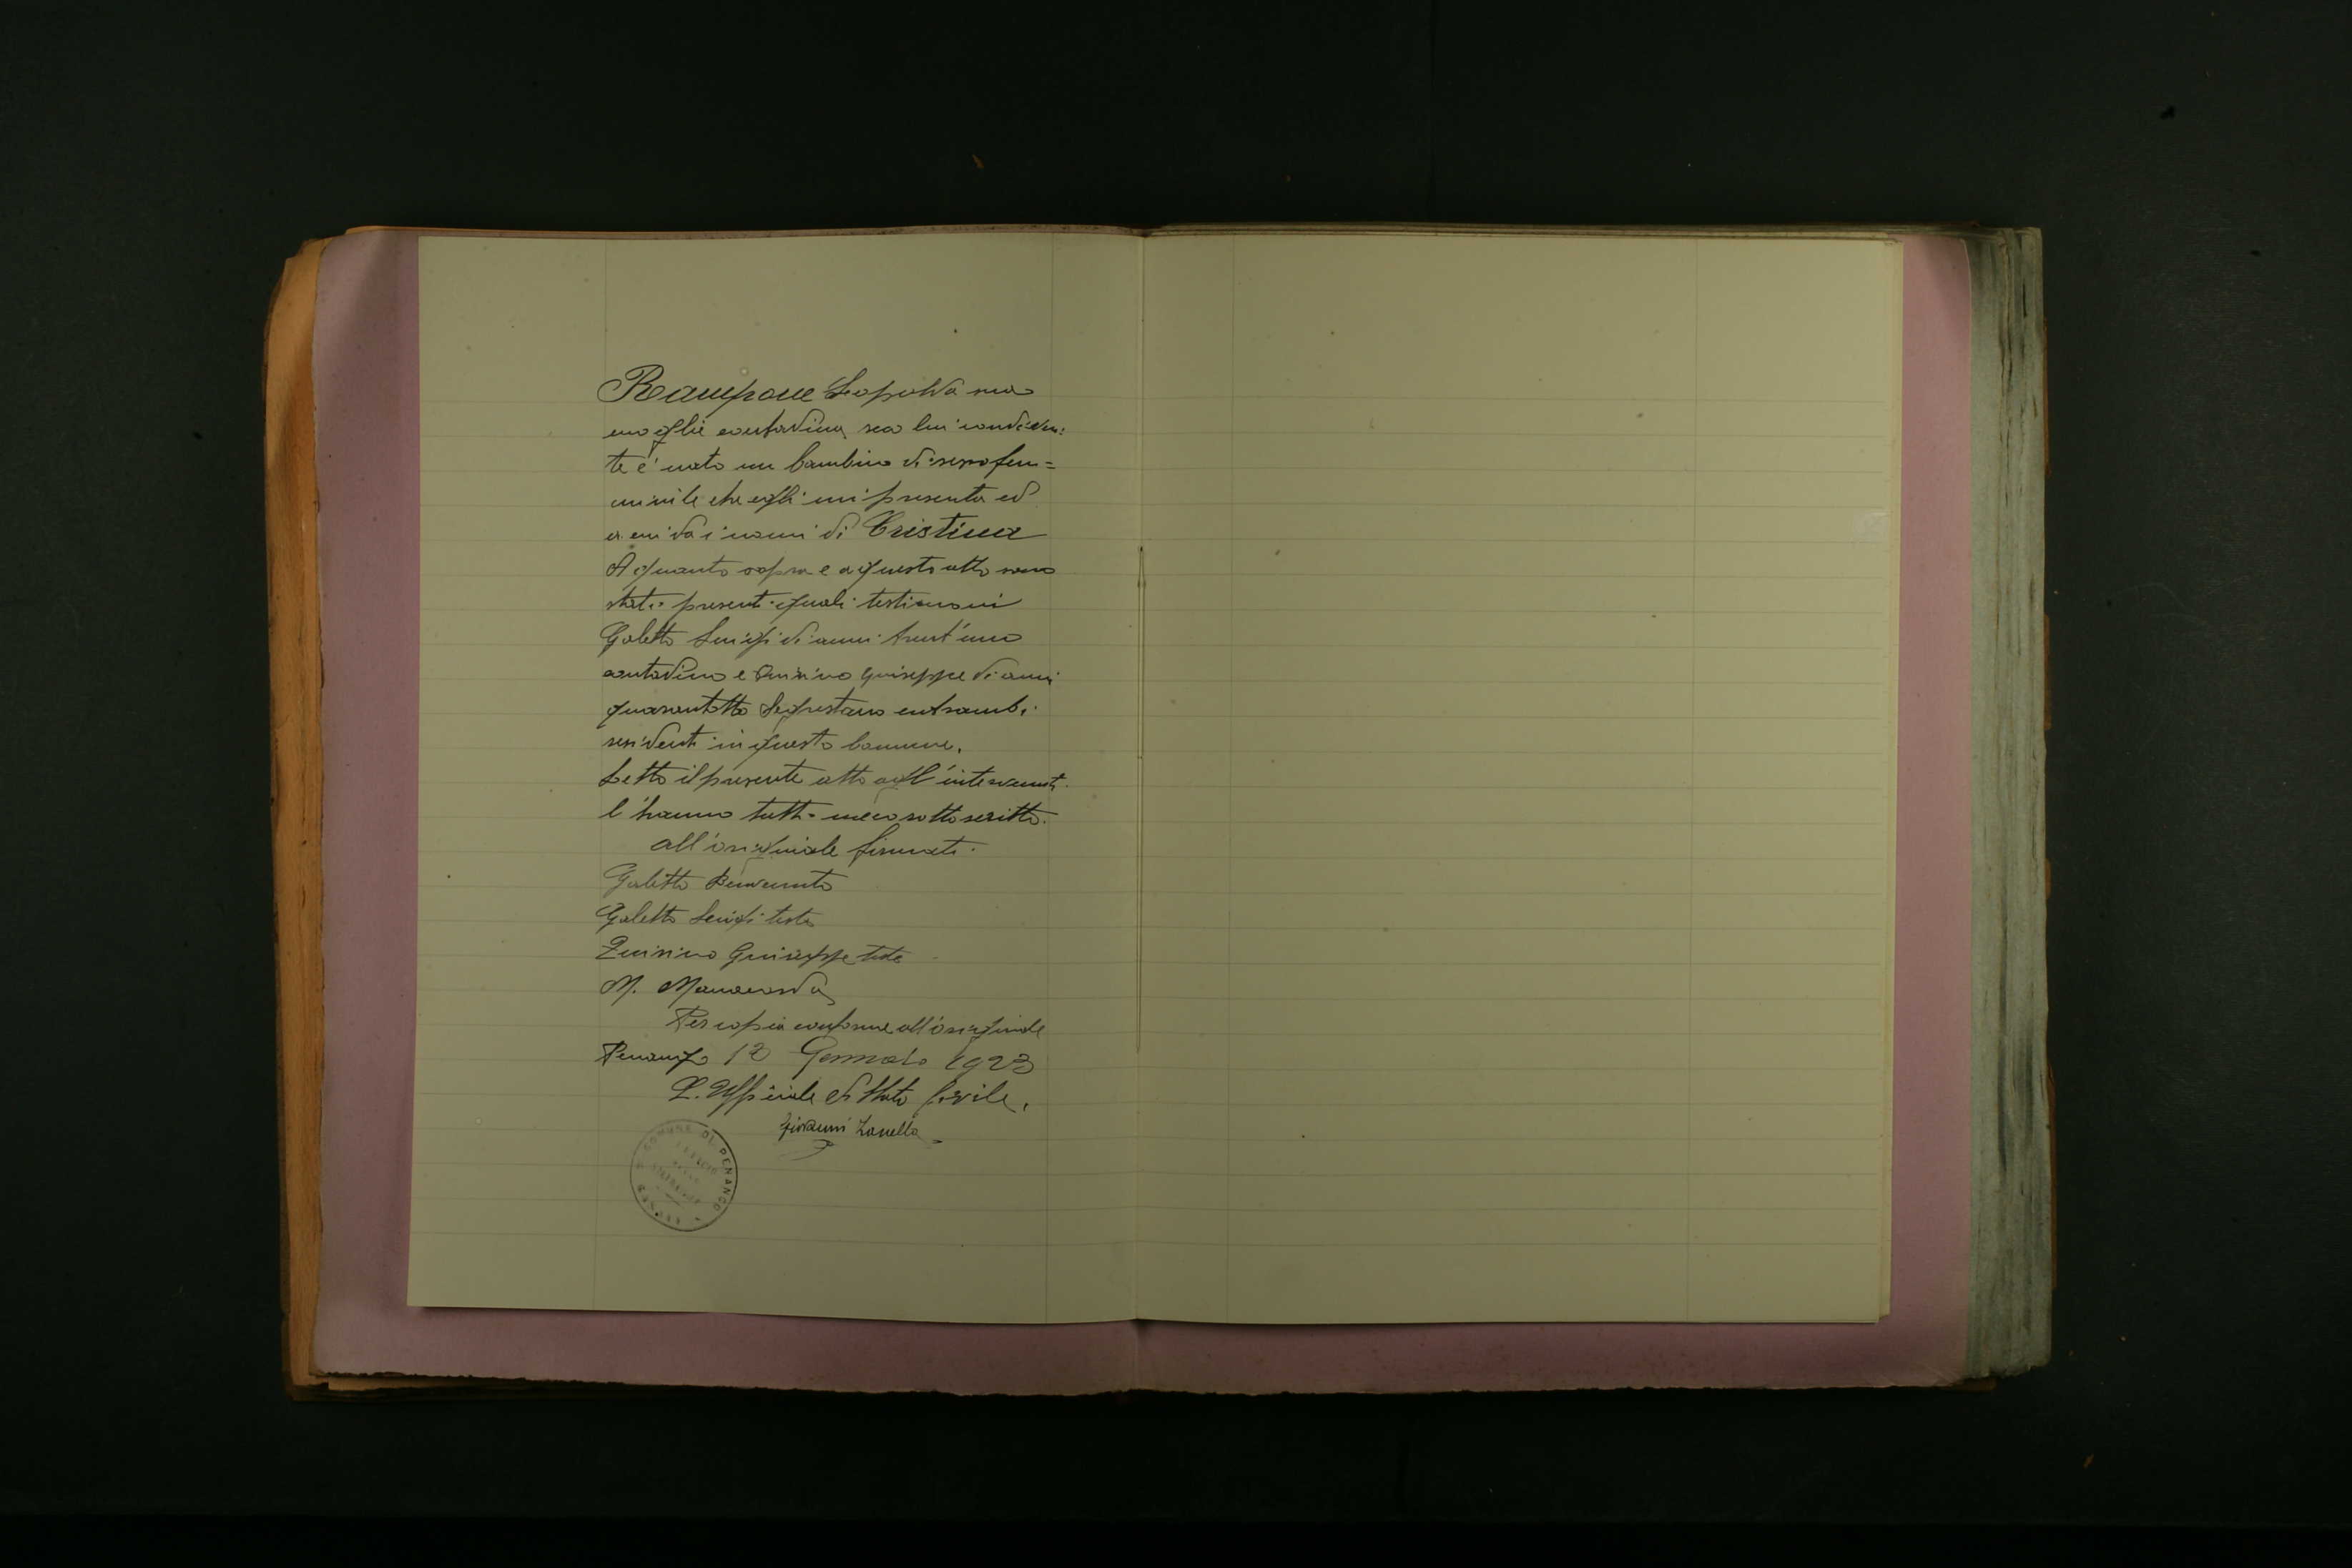 Rampone Leopolda sua
moglie contadina seco lui conviven:
te è nato un bambino di sesso fem=
minile che egli mi presenta ed
a cui dà i nomi di Cristina
A quanto sopra e a questo atto sono
stati presenti quali testimoni
Galetto Luigi di anni trent'uno
contadino e Quirino Giuseppe di anni
quarantotto Segrestano entrambi
residenti in questo Comune.
Letto il presente atto agl'intervenuti
l'hanno tutti meco sottoscritto.
all'originale firmati.
Galetto Benvenuto
Galetto Luigi teste
Quirino Giuseppe teste
M.
Per copia conforme all'originale
Penango 12 Gennaio 1923
L'Ufficiale di Stato Civile.
Giovanni Zanello
COMUNE DI PENANGO